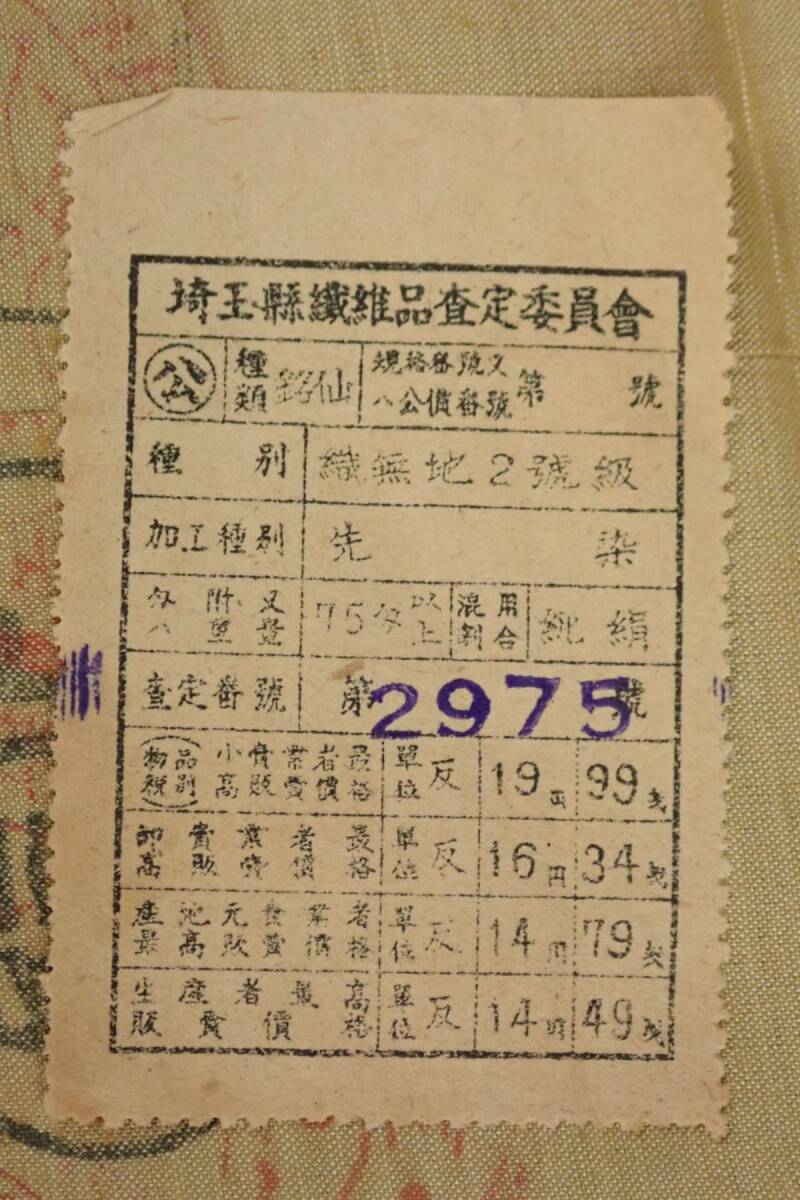 埼玉縣纖維品査定委員會
公 種類 銘仙 規格番號又ハ公價番號 第 號
種別 織無地2號級
加工種別 先染
匁附又ハ重量 75匁以上 混用割合 純絹
査定番號 第2975號
(物品税別) 小賣業者最高販賣價格 單位 反 19円99戋
卸賣業者最高販賣價格 單位 反 16円34戋
産地元賣業者最高販賣價格 單位 反 14円79戋
生産者最高販賣價格 單位 反 14円49戋